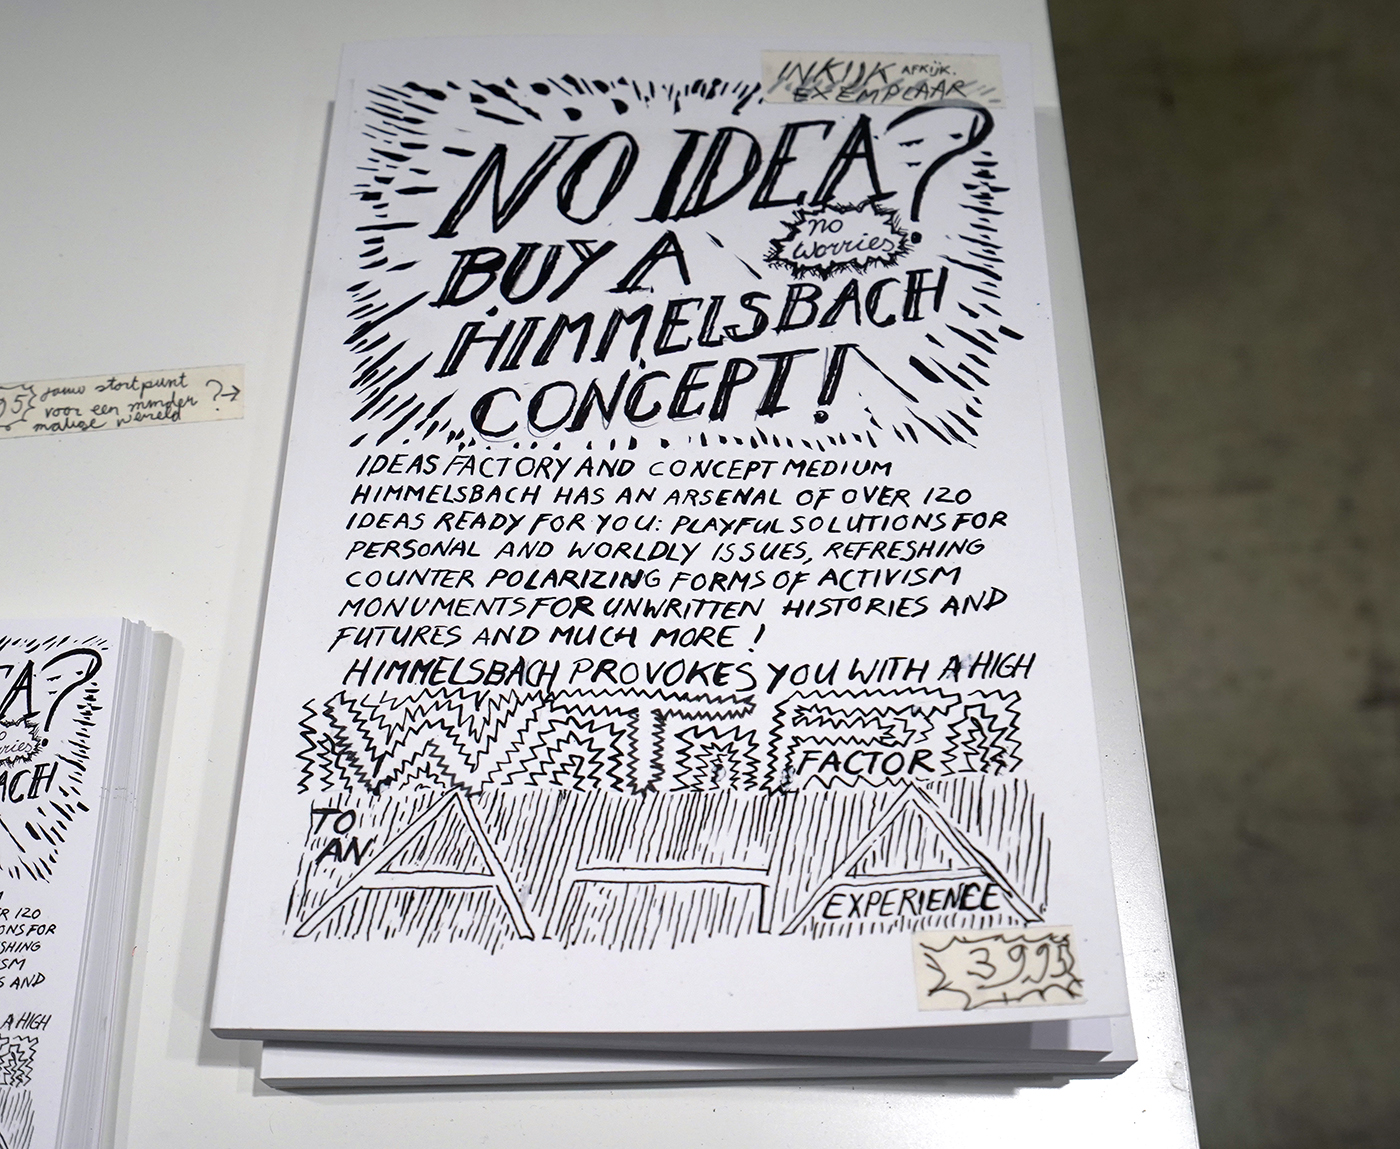 INKIJK AFKIJK.
EXEMPLAAR
NO IDEA?
no
worries
BUY A
HIMMELSBACH
CONCEPT!
IDEAS FACTORY AND CONCEPT MEDIUM
HIMMELSBACH HAS AN ARSENAL OF OVER 120
IDEAS READY FOR YOU: PLAYFUL SOLUTIONS FOR
PERSONAL AND WORLDLY ISSUES, REFRESHING
COUNTER POLARIZING FORMS OF ACTIVISM
MONUMENTS FOR UNWRITTEN HISTORIES AND
FUTURES AND MUCH MORE!
HIMMELSBACH PROVOKES YOU WITH A HIGH
FACTOR
TO
AN
AHA
EXPERIENCE
3995
95 startpunt ?→
voor een minder
matige wereld
A?
ACH
R 120
ONS FOR
SHING
SM
S AND
A HIGH